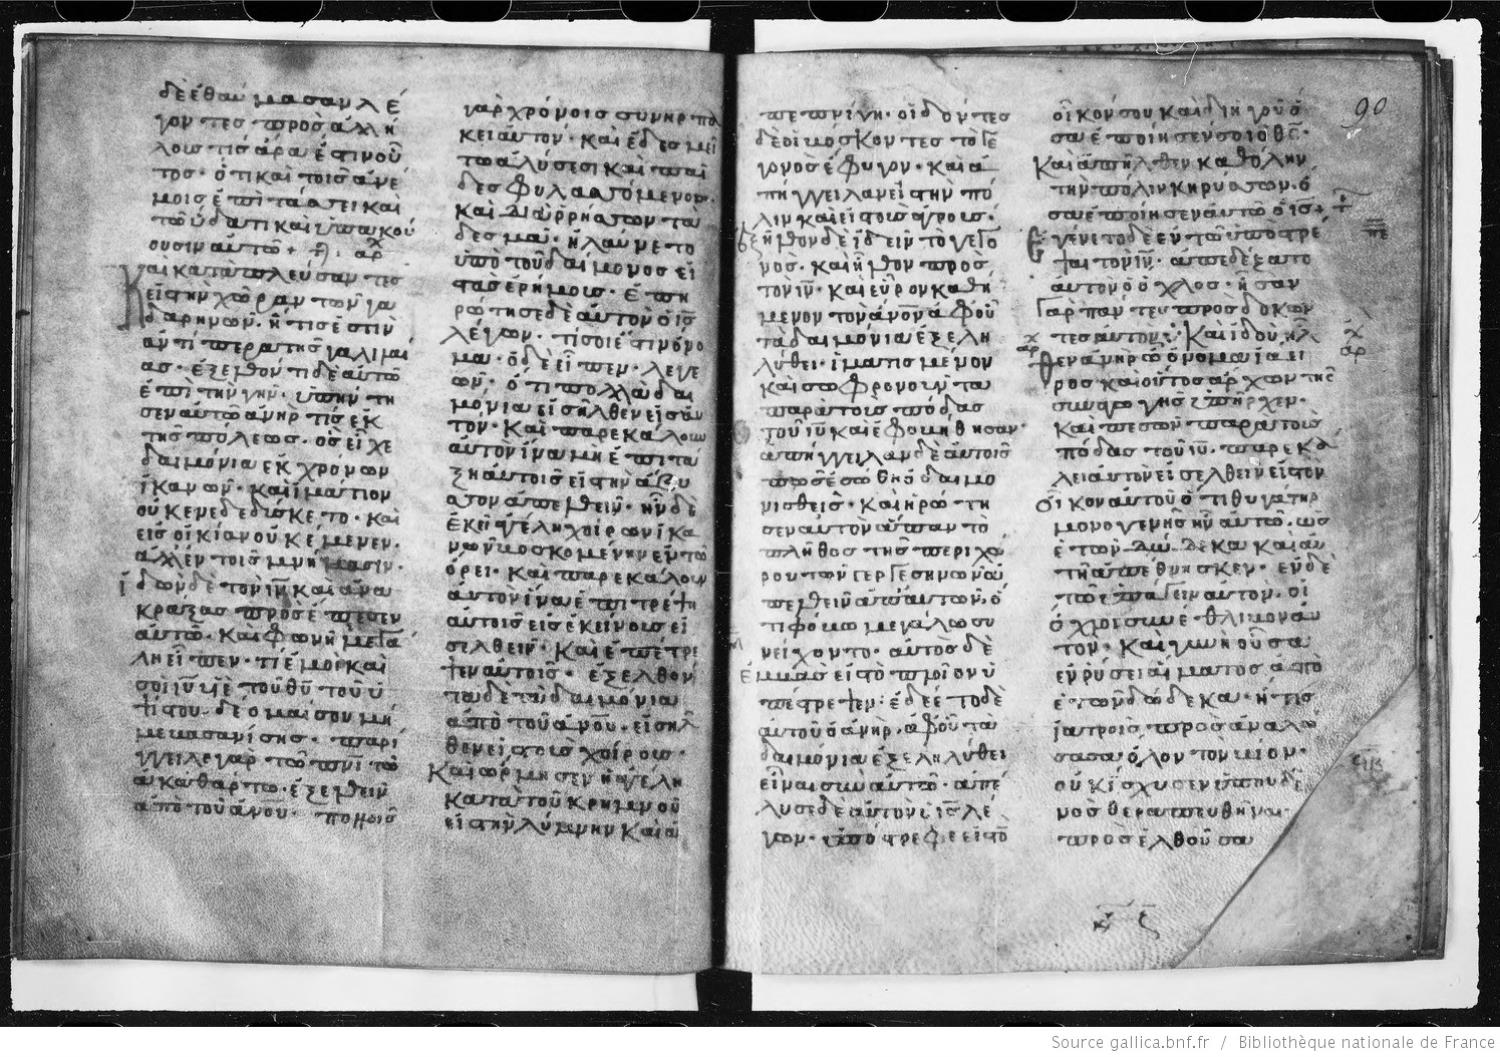 δὲ ἐθαύμασαν λέ
γοντες πρὸς ἀλλή
λους τίς ἄρα ἐστιν οὗ
τος· ὅτι καὶ τοῖς ἀνέ
μοις ἐπιτάσσει καὶ
τῶ ὕδατι καὶ ὑπακού
ουσιν αὐτῶ
Καὶ κατέπλευσαν
εἰς τὴν χώραν τῶν γα
δαρηνῶν· ἥτις ἐστὶν
ἀντίπερα τῆς γαλιλαί
ας· ἐξελθόντι δὲ αὐτῶ
ἐπὶ τὴν γῆν· ὑπήντη
σεν αὐτῶ ἀνήρ τις ἐκ
τῆς πόλεως· ὃς εἶχε
δαιμόνια ἐκ χρόνων
ἱκανῶν· καὶ ἱμάτιον
οὐκ ἐνεδεδίσκετο· καὶ
εἰς οἰκίαν οὐκ ἔμενεν·
ἀλλ' ἐν τοῖς μνήμασιν·
ἰδὼν δὲ τὸν ἰν καὶ ἀνα
κράξας προσέπεσεν
αὐτῶ· καὶ φωνῆ μεγά
λη εἶπεν· τί ἐμοὶ καὶ
σοὶ ἰῦ υἱὲ τοῦ θυ τοῦ ὑ
ψίστου· δέομαί σου μή
με βασανίσης· παρή
γγειλε γὰρ τῶ πνι τῶ
ἀκαθάρτω ἐξελθεῖν
ἀπὸ τοῦ ἀνου· πολλοῖς
γὰρ χρόνοις συνηρπά
κει αὐτόν· καὶ ἐδεσμεῖ
το ἁλύσεσι καὶ πέ
δες φυλασσόμενος·
καὶ διαρρήσσων τὰ
δεσμὰ· ἠλαύνετο
ὑπὸ τοῦ δαίμονος εἰ
τὰς ἐρήμους· ἐπη
ρώτησε δὲ αὐτὸν ὁ ις
λέγων· τί σοι ἐστιν ὄνο
μα· ὁ δὲ εἶπεν· λεγε
ών· ὅτι πολλὰ δαι
μόνια εἰσῆλθεν εἰς αὐ
τόν· καὶ παρεκάλουν
αὐτὸν ἵνα μὴ ἐπιτά
ξη αὐτοῖς εἰς τὴν ἄβυ
σσον ἀπελθεῖν· ἦν δὲ
ἐκεῖ ἀγέλη χοίρων ἱκα
νῶν βοσκομένην ἐν τῶ
ὄρει· καὶ παρεκάλουν
αὐτὸν ἵνα ἐπιτρέψη
αὐτοῖς εἰς ἐκείνους εἰ
σελθεῖν· καὶ ἐπέτρε
ψεν αὐτοῖς· ἐξελθόν
τα δὲ τὰ δαιμόνια
ἀπὸ τοῦ ἀνου· εἰσῆλ
θεν εἰς τοὺς χοίρους·
Καὶ ὥρμησεν ἡ ἀγέλη
κατὰ τοῦ κρημνοῦ
εἰς τὴν λίμνην καὶ ἀ
πεπνίγη· οἰδόντες
δὲ οἱ βόσκοντες τὸ γε
γονὸς ἔφυγον· καὶ ἀ
πήγγειλαν εἰς τὴν πό
λιν καὶ εἰς τοὺς ἀγρούς·
ἐξῆλθον δὲ ἰδεῖν τὸ γεγο
νός· καὶ ἦλθον πρὸς
τὸν ἰν· καὶ εὗρον καθή
μενον τὸν ἀνον ἀφ' οὗ
τὰ δαιμόνια ἐξελη
λύθει· ἱματισμένον
καὶ σωφρονοῦντα
παρὰ τοὺς πόδας
τοῦ ιυ καὶ ἐφοβήθησαν·
ἀπήγγειλαν δὲ αὐτοῖς
πῶς ἐσώθη ὁ δαιμο
νισθείς· Καὶ ἠρώτη
σεν αὐτὸν ἅπαν τὸ
πλῆθος τῆς περιχώ
ρου τῶν γεργεσηνῶν ἀ
πελθεῖν ἀπ' αὐτῶν· ὅ
τι φόβω μεγάλω συ
νείχοντο· αὐτὸς δὲ
ἐμβὰς εἰς τὸ πλοῖον ὑ
πέστρεψεν· ἐδέετο δὲ
αὐτοῦ ὁ ἀνήρ· ἀφ' οὗ τὰ
δαιμόνια ἐξεληλύθει
εἶναι σὺν αὐτῶ· ἀπέ
λυσε δὲ αὐτὸν ὁ ις λέ
γων· ὑπόστρεφε εἰς τὸ
90
οἶκόν σου καὶ διηγοῦ ὅ
σα ἐποίησέν σοι ὁ θς·
Καὶ ἀπῆλθεν καθ' ὅλην
τὴν πόλιν κηρύσσων· ὅ
σα ἐποίησεν αὐτῶ ὁ ις
Ἐγένετο δὲ ἐν τῶ ὑποστρέ
ψαι τὸν ιν· ἀπεδέξατο
αὐτὸν ὁ ὄχλος· ἦσαν
γὰρ πάντες προσδοκῶν
τες αὐτόν· Καὶ ἰδοὺ ἦλ
θεν ἀνὴρ ὧ ὄνομα ἰάει
ρος καὶ οὗτος ἄρχων τῆς
συναγωγῆς ὑπῆρχεν·
καὶ πεσὼν παρὰ τοὺς
πόδας τοῦ ιυ· παρεκά
λει αὐτὸν εἰσελθεῖν εἰς τὸν
οἶκον αὐτοῦ ὅτι θυγάτηρ
μονογενὴς ἦν αὐτῶ· ὡς
ἐτῶν δώδεκα καὶ αὐ
τὴ ἀπέθνησκεν· ἐν δὲ
τῶ ὑπάγειν αὐτόν· οἱ
ὄχλοι συνέθλιβον αὐ
τόν· Καὶ γυνὴ οὖσα
ἐν ῥύσει αἵματος ἀπὸ
ἐτῶν δώδεκα· ἥτις
ἰατροῖς προσαναλώ
σασα ὅλον τὸν βίον·
οὐκ ἴσχυσεν ὑπ' οὐδε
νὸς θεραπευθῆναι·
προσελθοῦσα
Source gallica.bnf.fr / Bibliothèque nationale de France